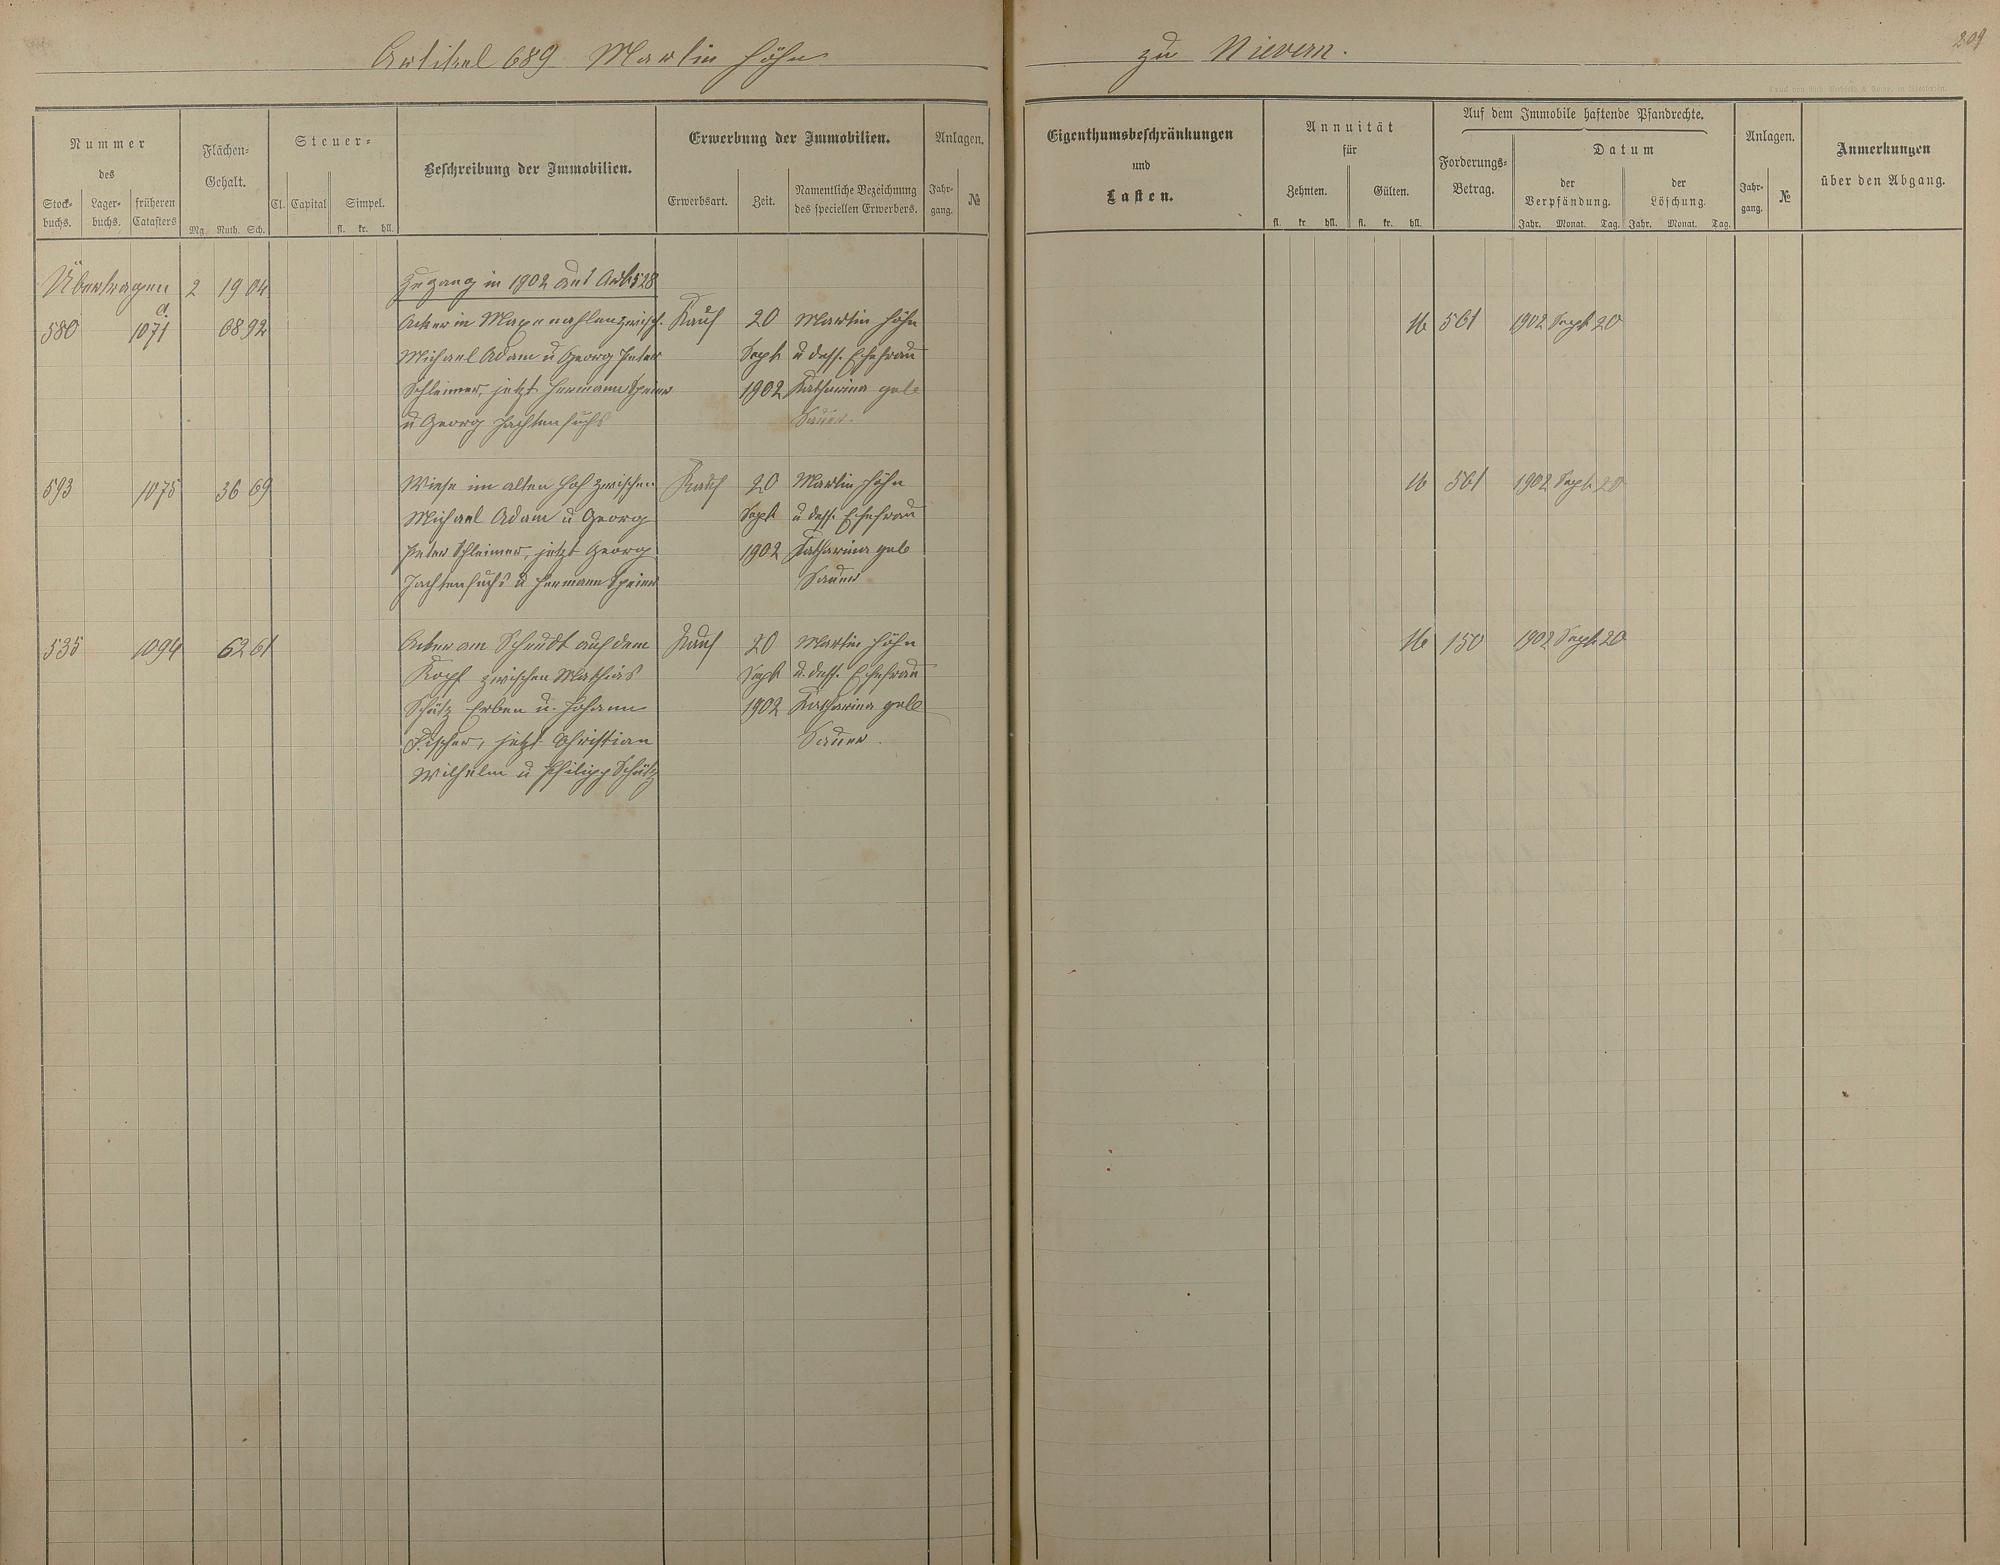 Artikel 689 Martin Höhn zu Nievern.
209
Nummer
des
Stock-
buchs.
Lager-
buchs.
früheren
Catasters
Flächen-
Gehalt.
Mg. Ruth. Sch.
Steuer-
Cl. Capital Simpel.
fl. kr. hll.
Beschreibung der Immobilien.
Erwerbung der Immobilien.
Erwerbsart. Zeit.
Namentliche Bezeichnung
des speciellen Erwerbers.
Anlagen.
Jahr-
gang.
№
Eigenthumsbeschränkungen
und
Lasten.
Annuität
für
Zehnten. Gülten.
fl. kr. hll. fl. kr. hll.
Auf dem Immobile haftende Pfandrechte.
Forderungs-
Betrag.
Datum
der
Verpfändung.
der
Löschung.
Jahr. Monat. Tag. Jahr. Monat. Tag.
Anlagen.
Jahr-
gang.
№
Anmerkungen
über den Abgang.
Übertragen 2 19 04 Zugang in 1902 aus Art 528
580 1071 d. 68 92 Acker in zwisch. Kauf 20 Martin Höhn 561 1902 Sept 20
Michael Adam u Georg Peter Sept u dess. Ehefrau
Schleimer, jetzt Hermann Speier 1902 Katharina geb
u Georg Jachtenfuchs Sauer.
593 1075 36 69 Wiese im alten Hof zwischen Kauf 20 Martin Höhn 561 1902 Sept 20
Michael Adam u Georg Sept u dess. Ehefrau
Peter Schleimer, jetzt Georg 1902 Katharina geb
Jachtenfuchs u Hermann Speier Sauer
535 1094 62 61 Acker am auf dem Kauf 20 Martin Höhn 150 1902 Sept 20
Kopf zwischen Mathias Sept u. dess. Ehefrau
Schütz Erben u. Johann 1902 Katharina geb
Fischer, jetzt Christian Sauer.
Wilhelm u Philipp Schütz